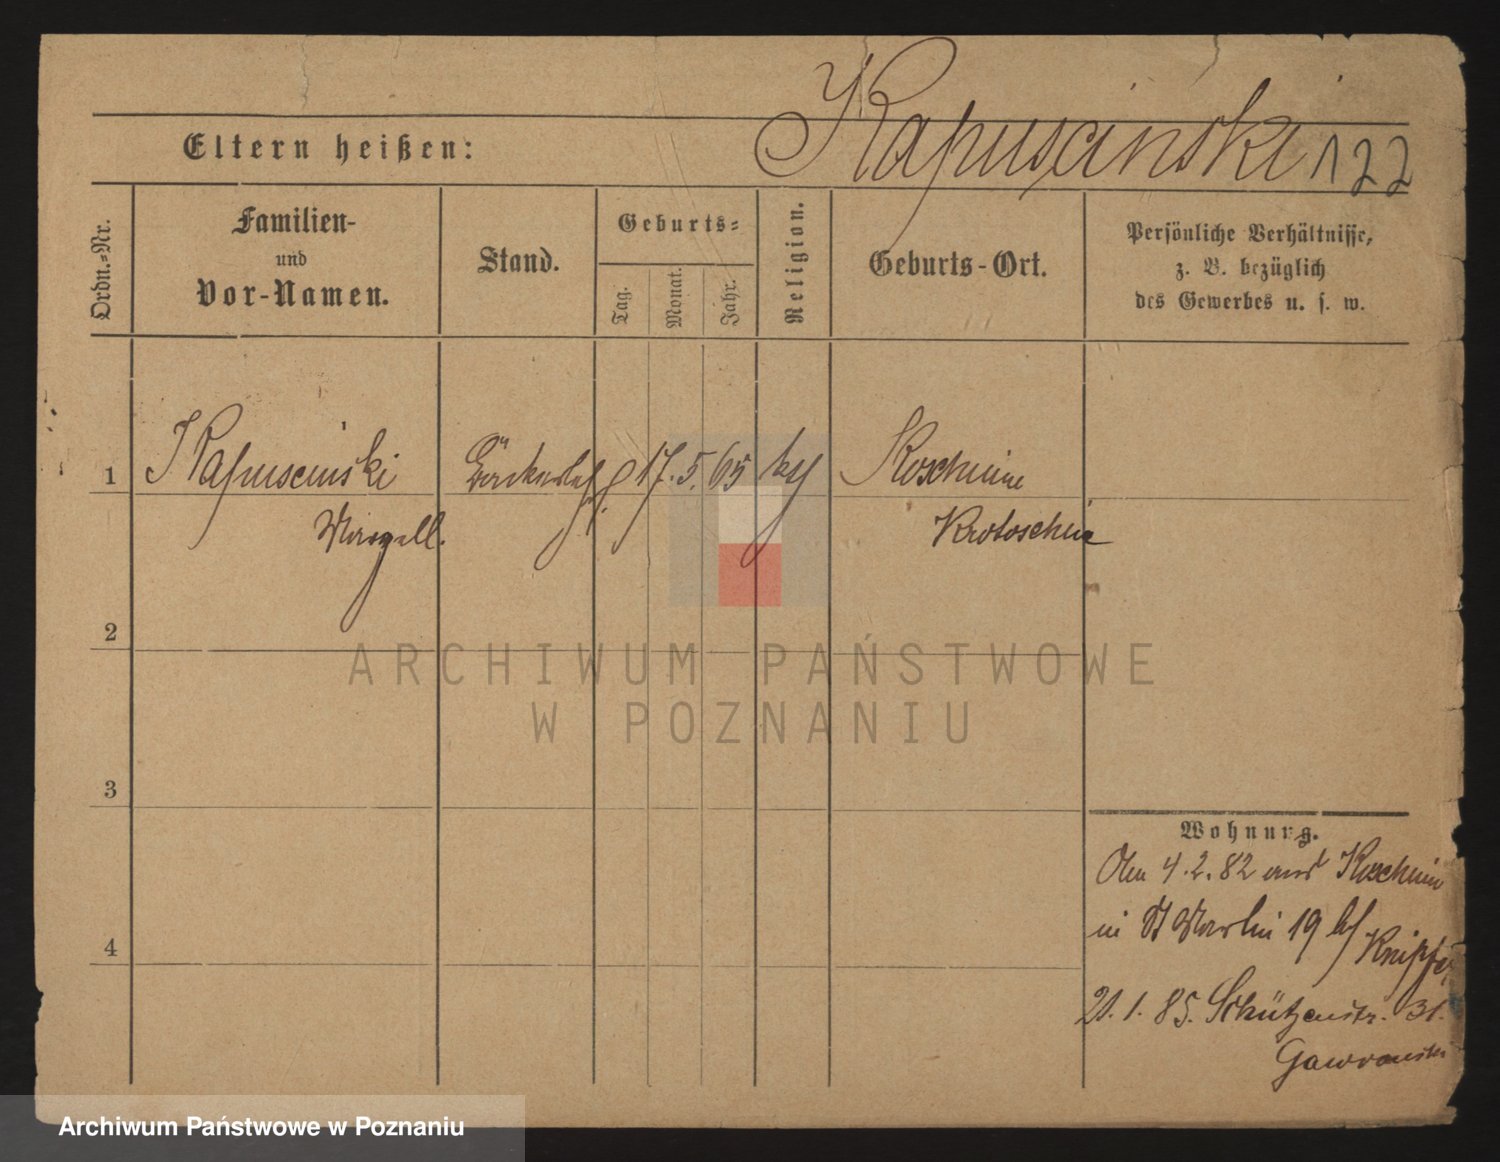 Kapuscinski 122
Eltern heißen:
Ordn.=Nr.
Familien-
und
Vor-Namen.
Stand.
Geburts=
Tag.
Monat.
Jahr.
Religion.
Geburts-Ort.
Persönliche Verhältnisse,
z. B. bezüglich
des Gewerbes u. s. w.
1 Kapuscinski 17. 5. 65 Koschmin
Krotoschin
2
ARCHIWUM PAŃSTWOWE
W POZNANIU
3
Wohnung.
4.2.82 aus Koschmin
in St Martin 19 bei
4
21.1.85. Schützenstr. 31.
Archiwum Państwowe w Poznaniu